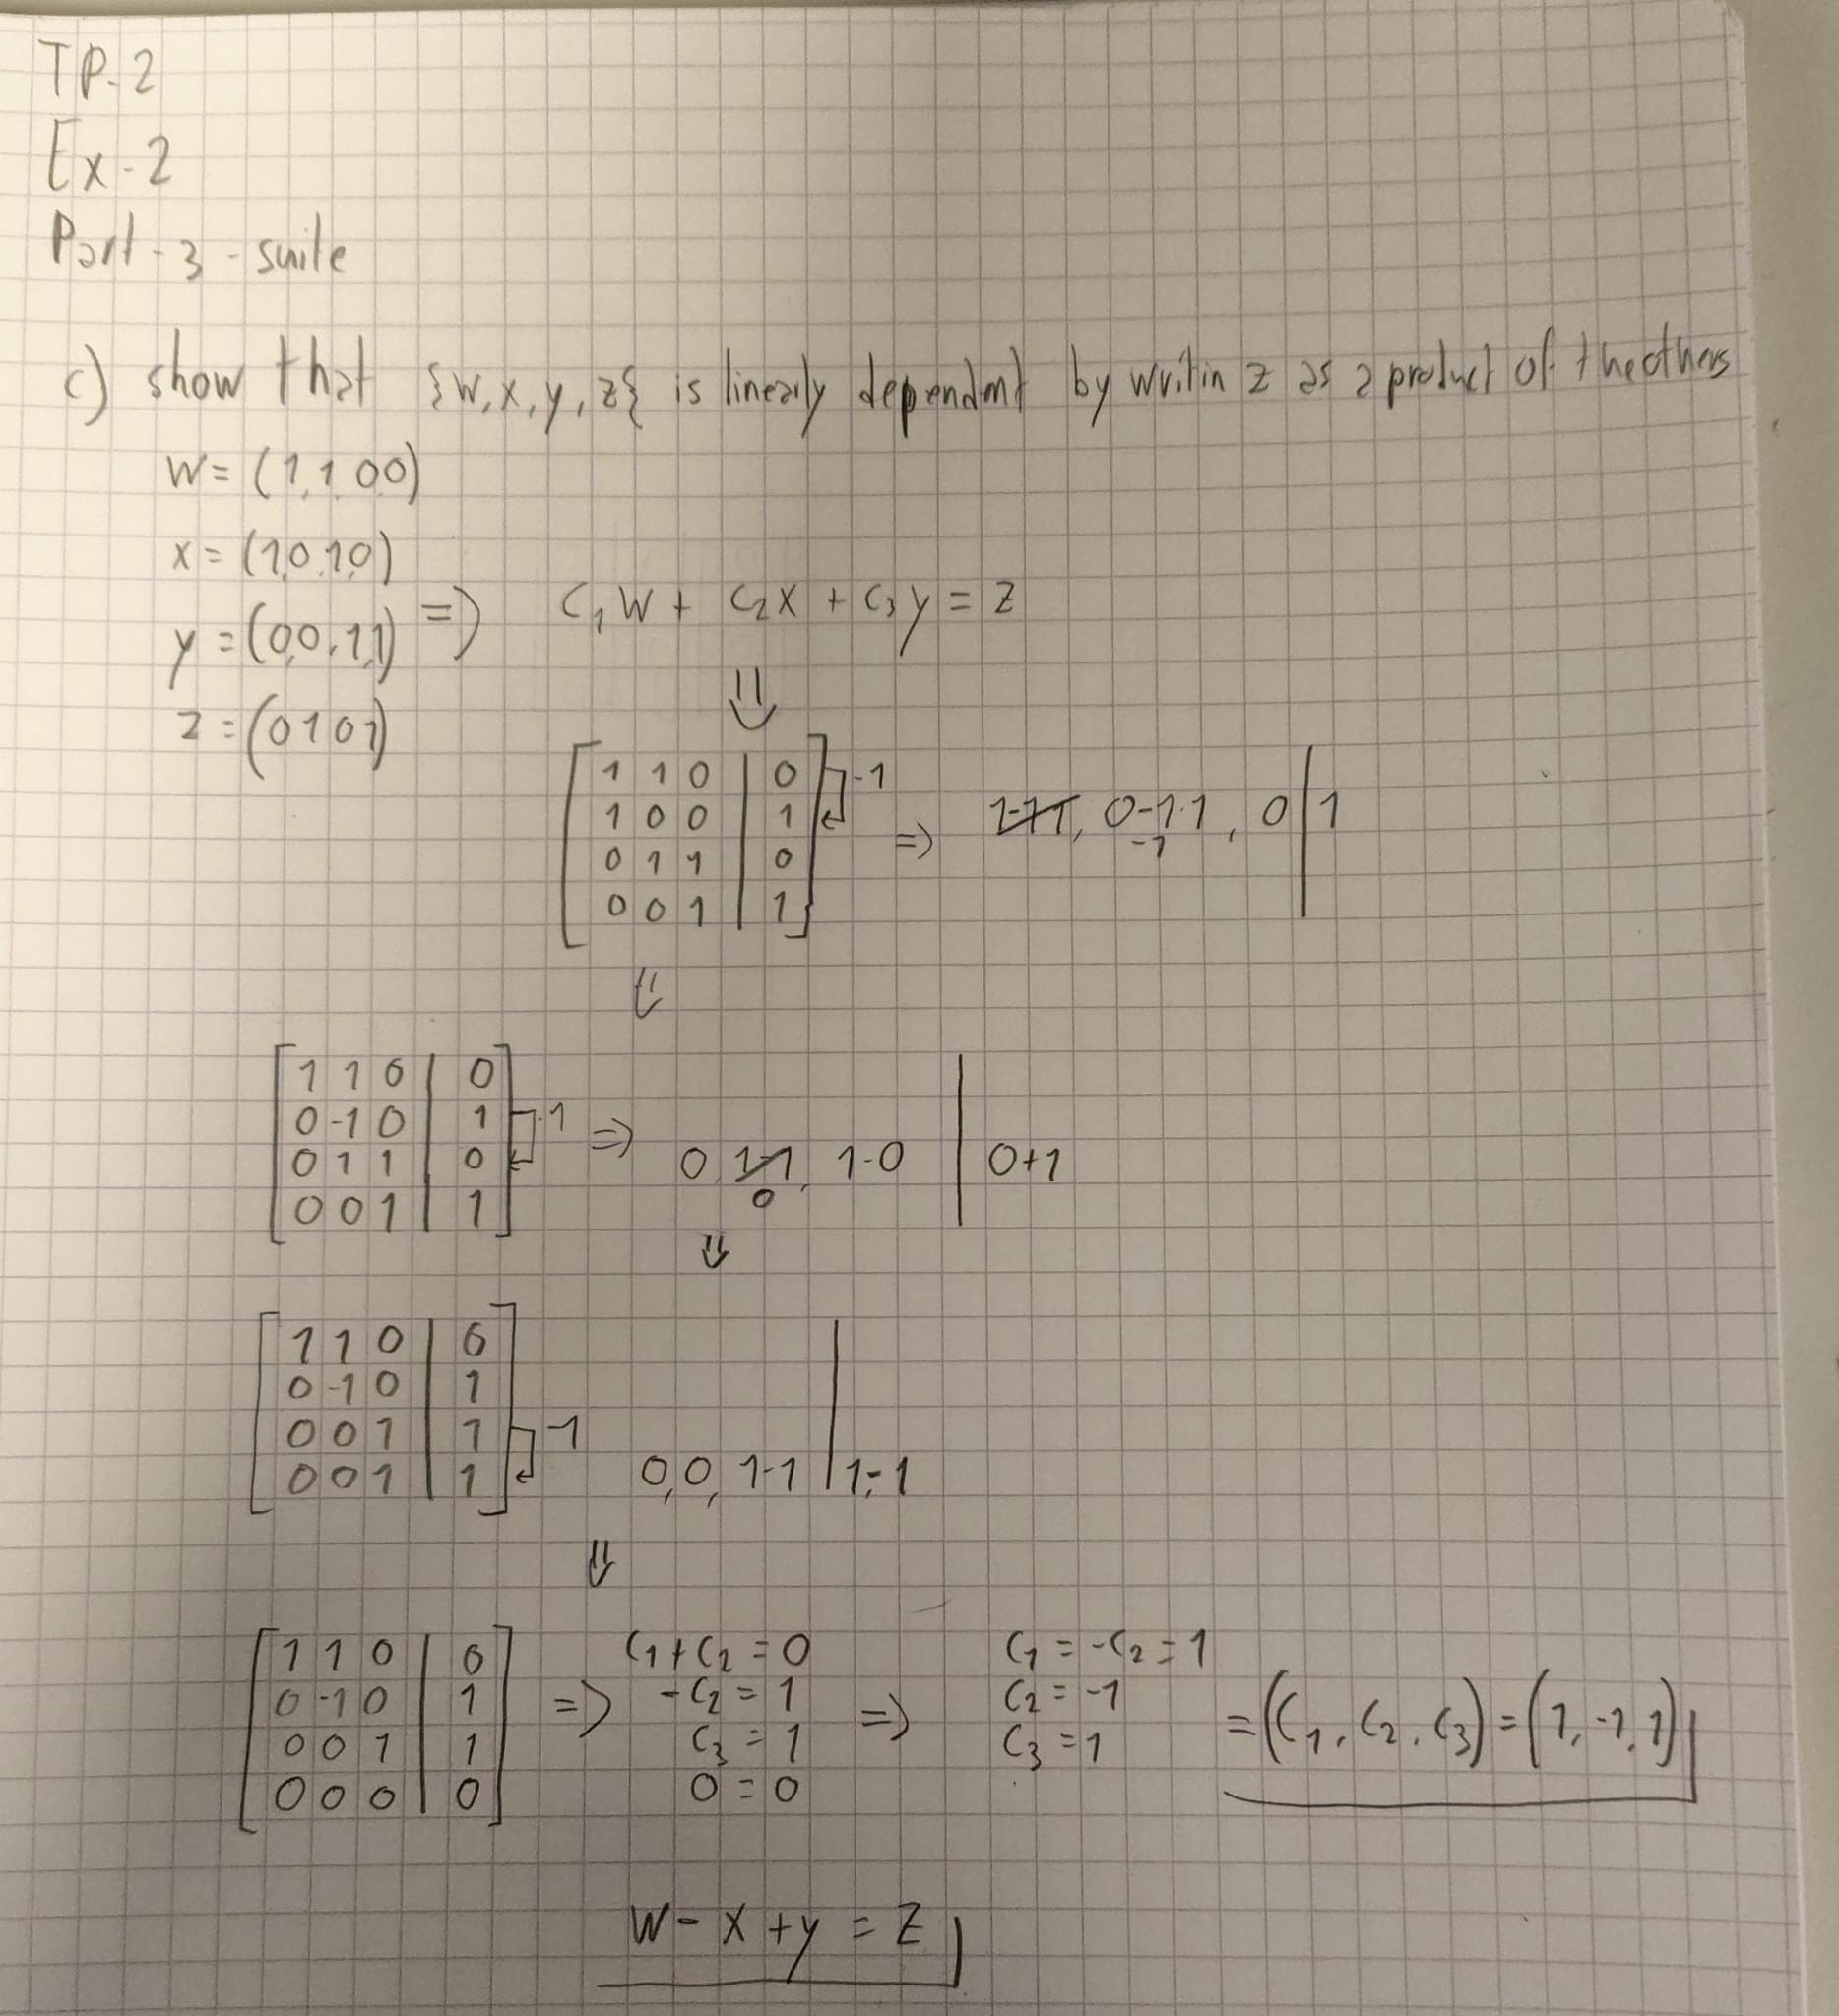 TP-2
Ex-2
Part-3-suite
c) show that {w,x,y,z} is linearly dependent by writin z as a product of the others
W = (1,1,0,0)
x = (1,0,1,0)
y = (0,0,1,1) => C₁W + C₂X + C₃y = z
z = (0 1 0 1)
⇓
1 1 0 | 0 -1
1 0 0 | 1 => 1-1·1, 0-1·1, 0 | 1
-1
0 1 1 | 0
0 0 1 | 1
⇓
1 1 0 | 0
0 -1 0 | 1 ·1
0 1 1 | 0 => 0 1-1, 1-0 | 0+1
0
0 0 1 | 1
⇓
1 1 0 | 0
0 -1 0 | 1
0 0 1 | 1 -1
0 0 1 | 1 0,0,1-1 | 1-1
⇓
1 1 0 | 0 C₁+C₂ = 0 C₁ = -C₂ = 1
0 -1 0 | 1 => -C₂ = 1 => C₂ = -1 = (C₁, C₂, C₃) = (1,-1,1)
0 0 1 | 1 C₃ = 1 C₃ = 1
0 0 0 | 0 0 = 0
W - X + y = Z